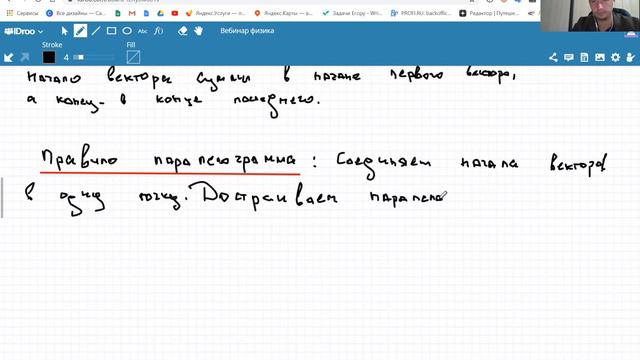 IDroo
Вебинар физика
Сервисы
Яндекс.Услуги
Яндекс.Карты — в
Задачи Егору – Wri
PROFI.RU: backoffic
Редактор | Путеше
Stroke
Fill
4
Abc
Начало вектора суммы в начале первого вектора,
а конец - в конце последнего.
Правило параллелограмма: Соединяем начала векторов
в одну точку. Достраиваем паралле